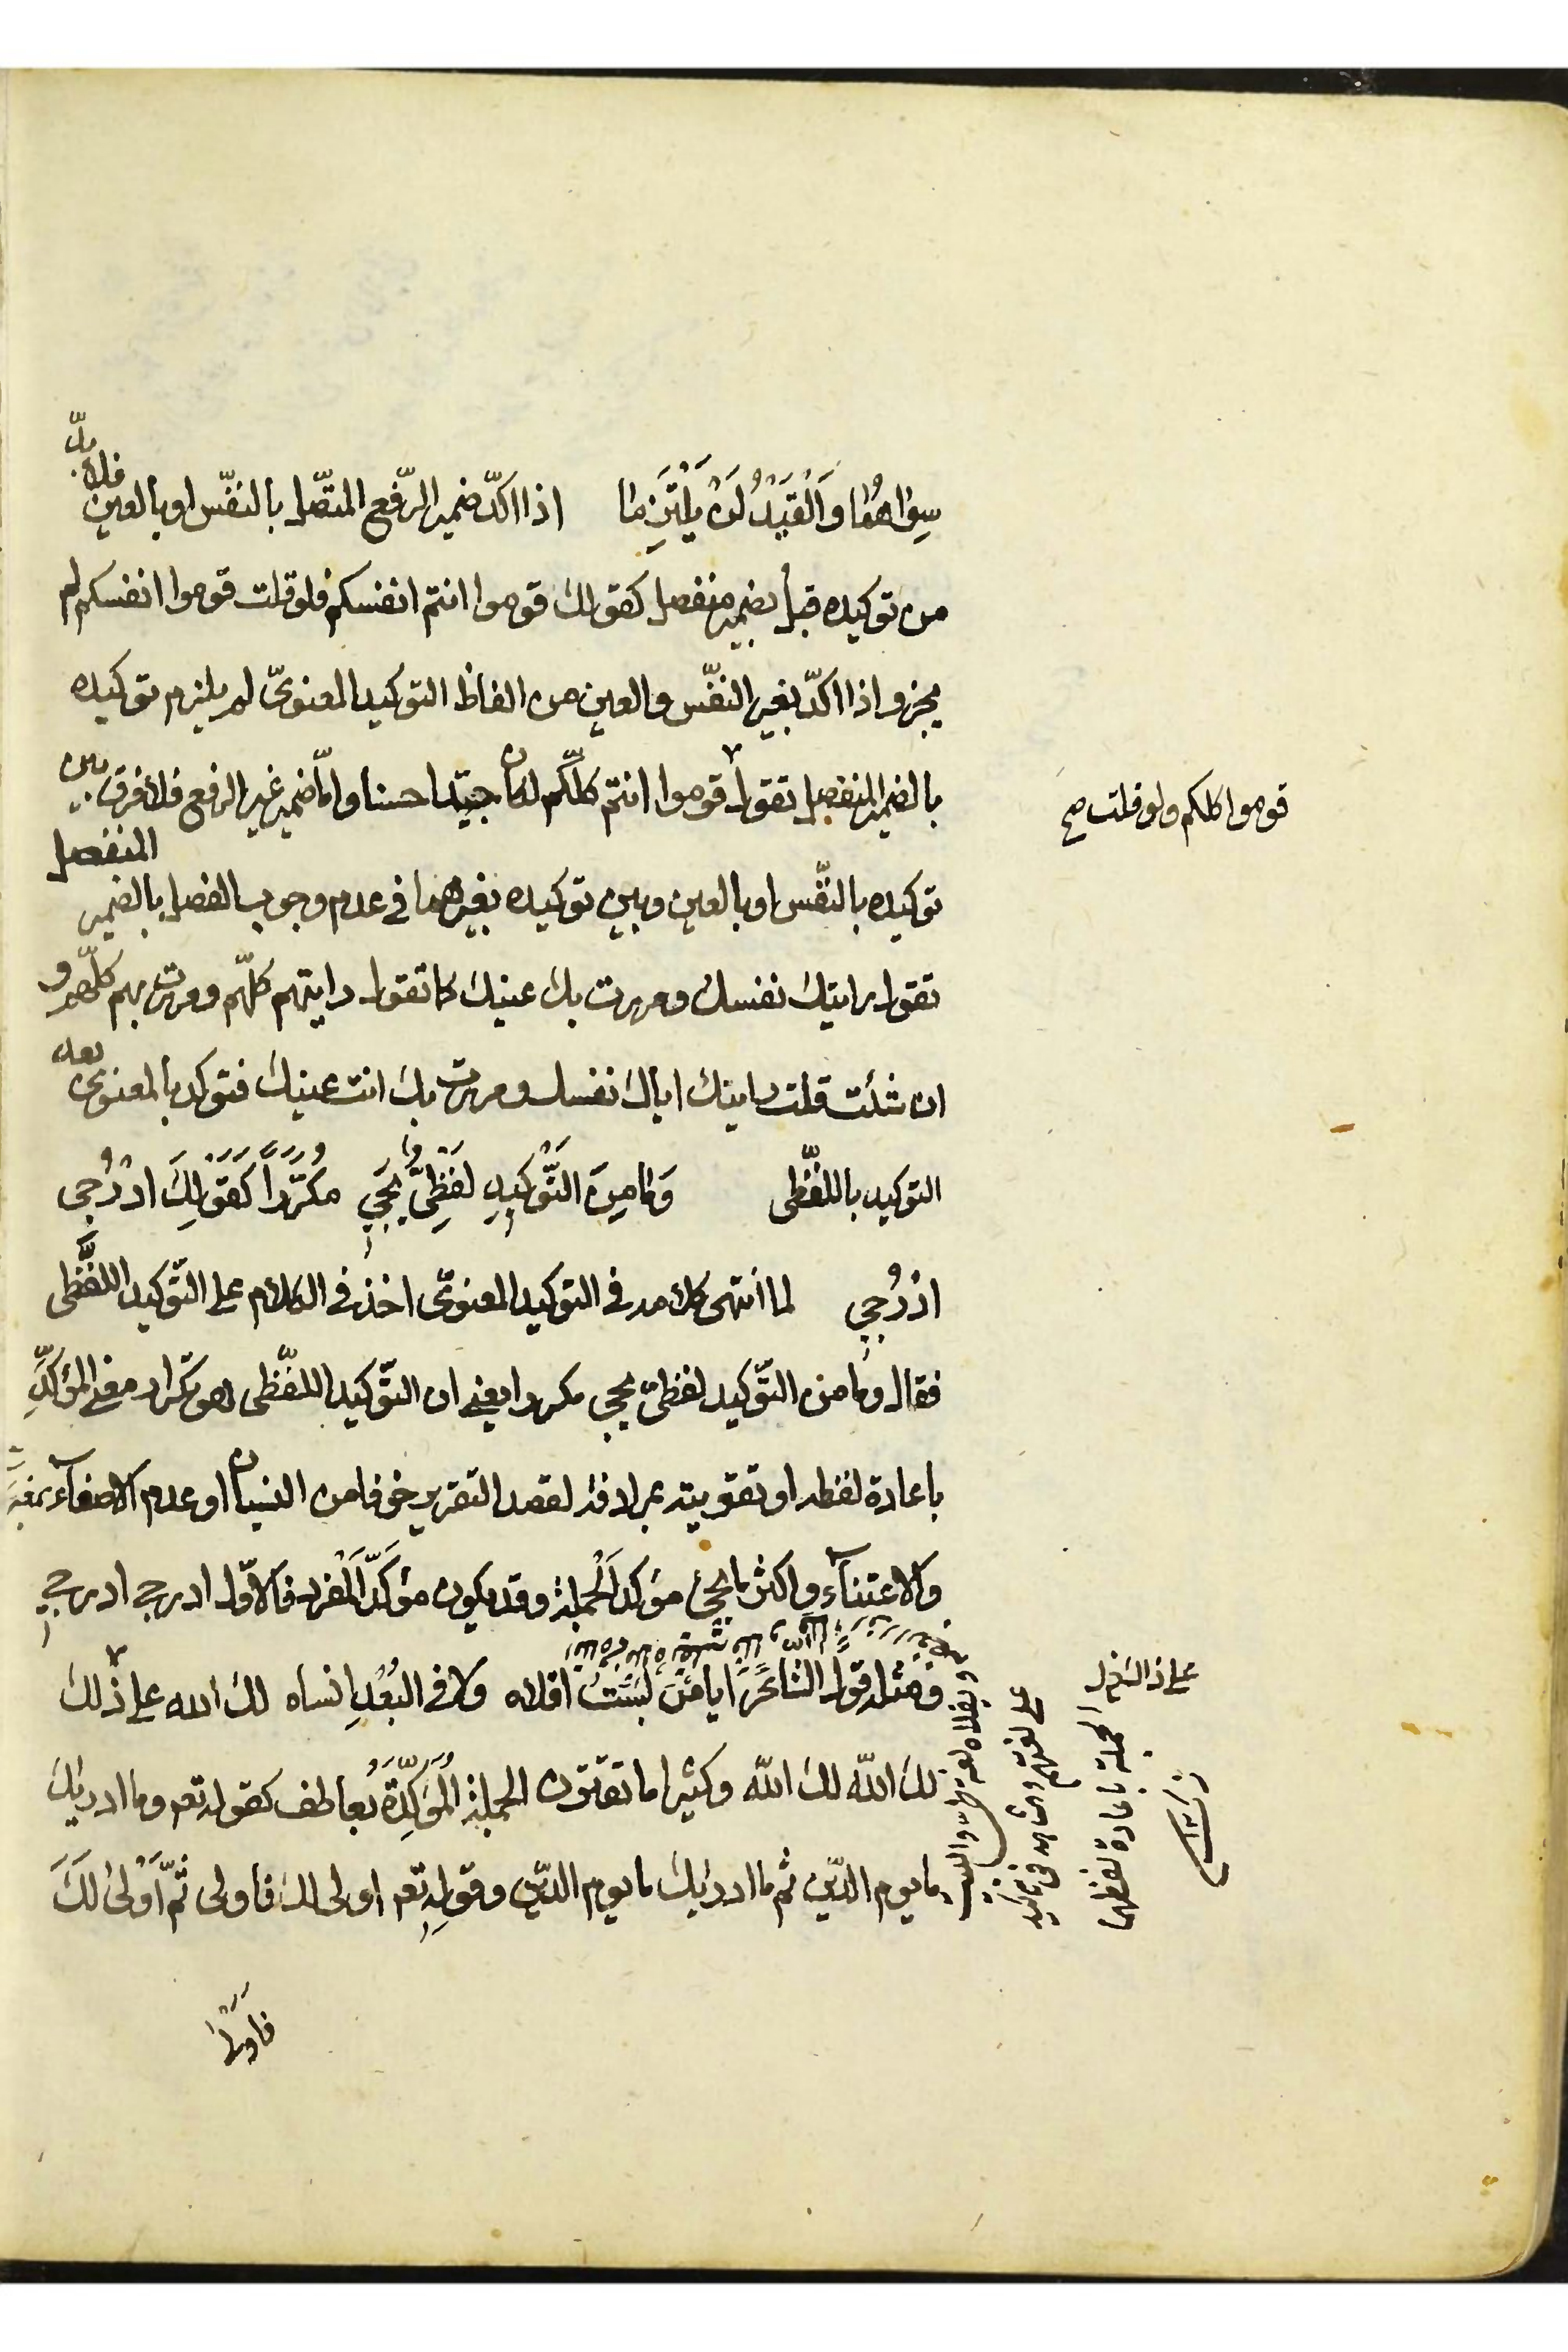 سِوَاهُمَا وَالْقَيْدُ لَنْ يُلْتَزَمَا اذا اكّد ضمير الرّفع المتّصل بالنفّس او بالعين فلا بدّ
من توكيده قبل بضمير منفصل كقولك قوموا انتم انفسكم فلو قلت قوموا انفسكم لم
يجز واذا اكدّ بغير النفّس والعين من الفاظ التوكيد المعنوىّ لم يلزم توكيده
بالضمير المنفصل تقول قوموا انتم كلّكم لكان جيّدا حسنا وامّا ضمير غير الرفع فلا فرق بين
قوموا كلكم ولو قلت صح
توكيده بالنفّس او بالعين وبين توكيده بغيرهما فى عدم وجوب الفصل بالضمير المنفصل
تقول رايتك نفسك ومررت بك عينك كما تقول رايتهم كلّهم ومررت بهم كلّهم و
ان شئت قلت رايتك اياك نفسك ومررت بك انت عينك فتوكد بالمعنوىّ بعد
التوكيد باللفّظى وَمَا مِنَ التَّوْكِيدِ لَفْظِىٌّ يَجِى مُكَرَّراً كَقَوْلِكَ ادْرُجِى
ادْرُجِى لما انتهى كلامه فى التوكيد المعنوىّ اخذ فى الكلام على التّوكيد اللفّظى
فقال وما من التّوكيد لفظىّ يجى مكررا يعنى ان التّوكيد اللفّظى هو تكرار معنى المؤكّدِ
باعادة لفظه او تقويته بمرادفه لقصد التقرير خوفا من النسيان او عدم الاصغآء
والاعتنآء واكثر ما يجئ مؤكد الجملة وقد يكون مؤكّد المفرد فالاوّل ادرجى ادرجى
ومثله قول الشاعر ايا من لست اقلاه ولا فى البُعْدِ انساه لك الله على ذلك
على ذا الشغل
لك اللّه لك اللّه وكثيرا ما تقترن الجملة المُؤَكِّدَة بعاطف كقوله تعـ وما ادريك
الجملة باعادة لفظها
ما يوم الدّين ثم ما ادريك ما يوم الدّين وقوله تعـ اولى لك فاولى ثمّ اَوْلىٰ لَكَ
فاَوْلىٰ